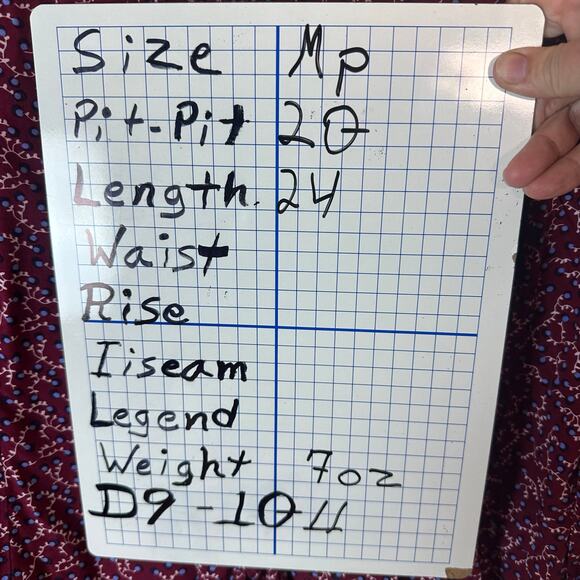 Size Mp
Pit-Pit 20
Length. 24
Waist
Rise
Iiseam
Legend
Weight 7oz
D9-1011